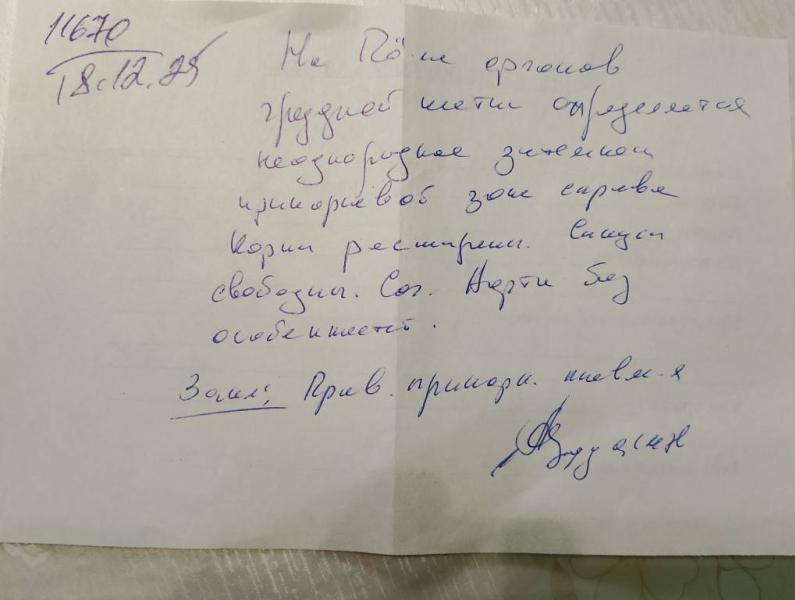 11670
18.12.25
На органов
грудной клетки определяется
неоднородное затемнен
прикорневой зоне справа
Корни расширены. Синусы
свободны. Аорта без
особенностей.
Закл: Прав. прикорн. пневм-я